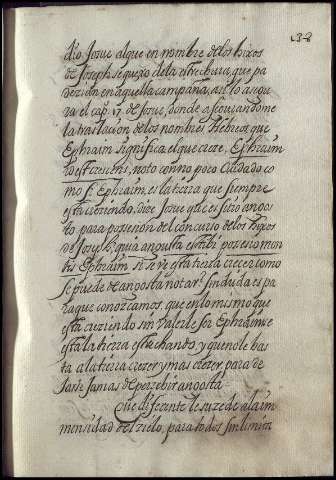 238
dio Josue al que en nombre de los hixos
de Joseph se quexo de la estrechura, que pa
dezian en aquella campaña, asi lo asegu
ra el cap. 17. de Josue, donde asegurandome
la traslacion de los nombres Hebreos que
Ephraim significa el que creze. Ephraim
id est crescens, noto con no poco Cuidado co
mo si Ephraim, es la tierra que siempre
esta creciendo, dize Josue que es sitio angos
to para posesion del concurso de los hixos
de Joseph, quia angusta est tibi possessio mon
tis Ephraim si se ve esta tierra crecer como
se puede de angosta notar? sin duda es pa
ra que conozcamos, que en lo mismo que
esta creziendo sin valerle ser Ephraim se
esta la tierra estrechando, y que no le bas
ta a la tierra crezer y mas crezer, para de
jarse jamas de perzebir angosta
Que diferente le suzede a la im
mensidad del zielo, para todos sin limita